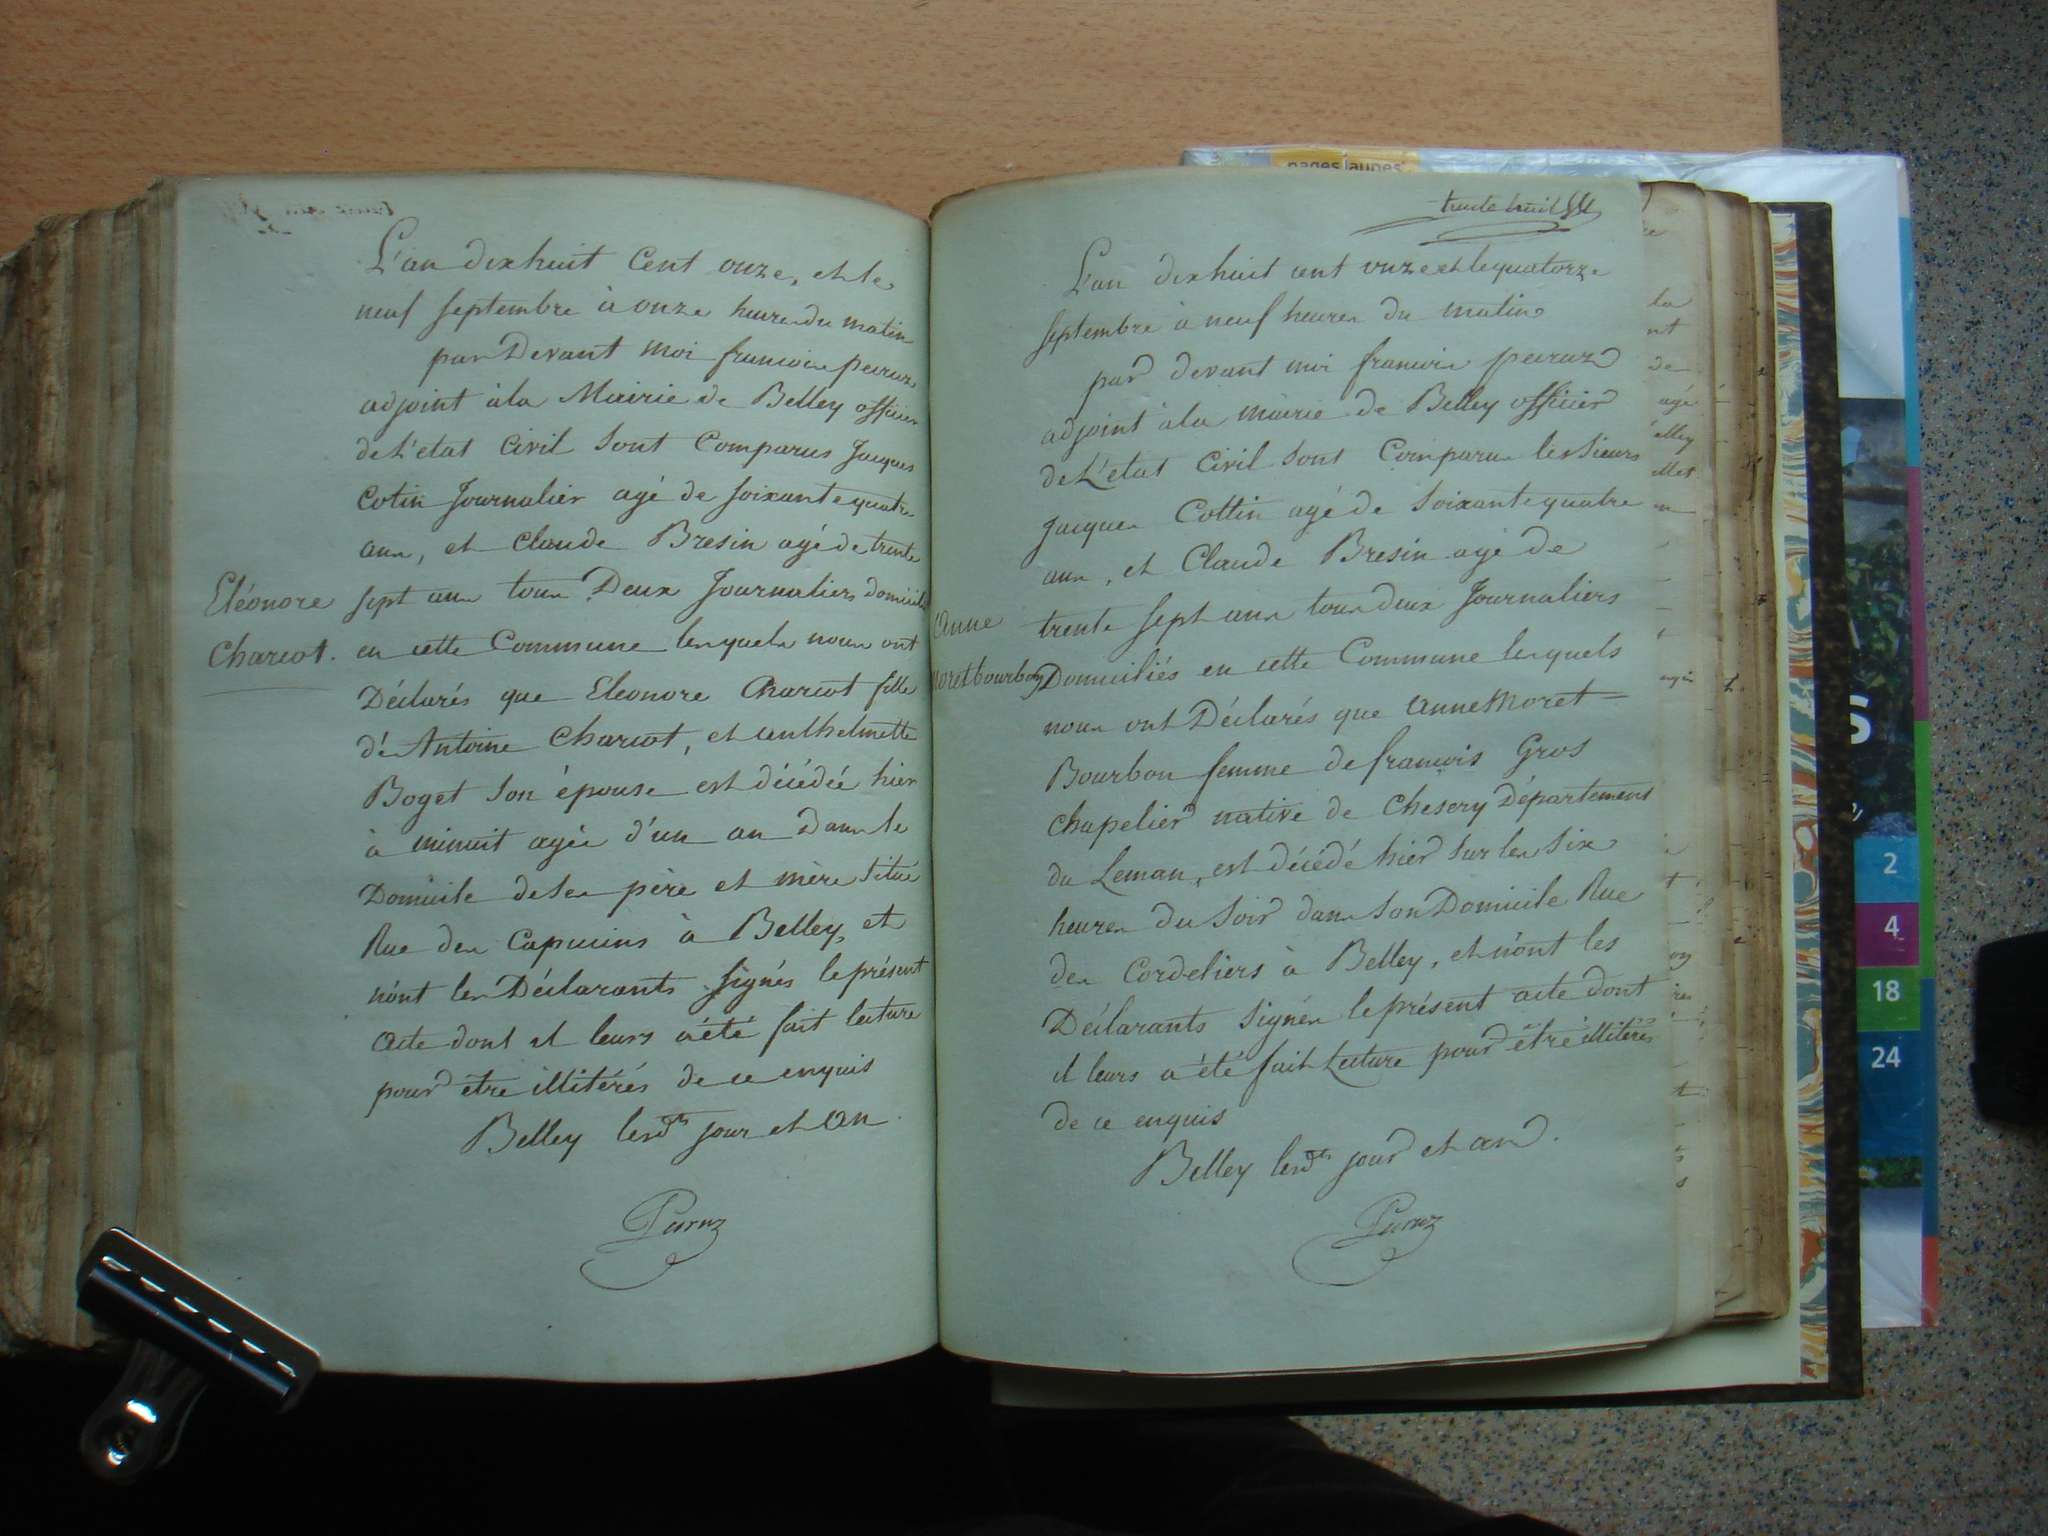 L'an dix huit Cent onze, et le
neuf septembre à onze heures du matin
par Devant moi francois peiruz
adjoint à la Mairie de Belley officier
de L'etat Civil sont Comparus Jacques
Cotin Journalier agé de soixante quatre
ans, et Claude Bresin agé de trente
sept ans tous Deux Journaliers domiciliés
en cette Commune lesquels nous ont
Déclarés que Eleonore Charcot fille
de Antoine Charcot, et anthelmette
Boget son épouse est décédée hier
à minuit agée d'un an Dans le
Domicile de ses père et mère situé
Rue des Capucins à Belley, et
n'ont les Déclarants signés le présent
acte dont il leurs a été fait lecture
pour être illitérés de ce enquis
Belley lesdts jour et an
Peiruz
Eléonore
Charcot.
trente huit
L'an dix huit cent onze et le quatorze
septembre à neuf heures du matin
par devant moi francois peiruz
adjoint à la mairie de Belley officier
de L'état Civil sont Comparus les sieurs
Jacques Cottin agé de soixante quatre
ans, et Claude Bresin agé de
trente sept ans tous deux Journaliers
Domiciliés en cette Commune lesquels
nous ont Déclarés que anne Moret
Bourbon femme de francois Gros
chapelier native de Chesery Département
du Leman, est décédé hier sur les six
heures du soir dans son Domicile Rue
des Cordeliers à Belley, et n'ont les
Déclarants signés le présent acte dont
il leurs a été fait Lecture pour être illitérés
de ce enquis
Belley lesdts jour et an.
Peiruz
anne
moret bourbon
pages jaunes
2
4
18
24